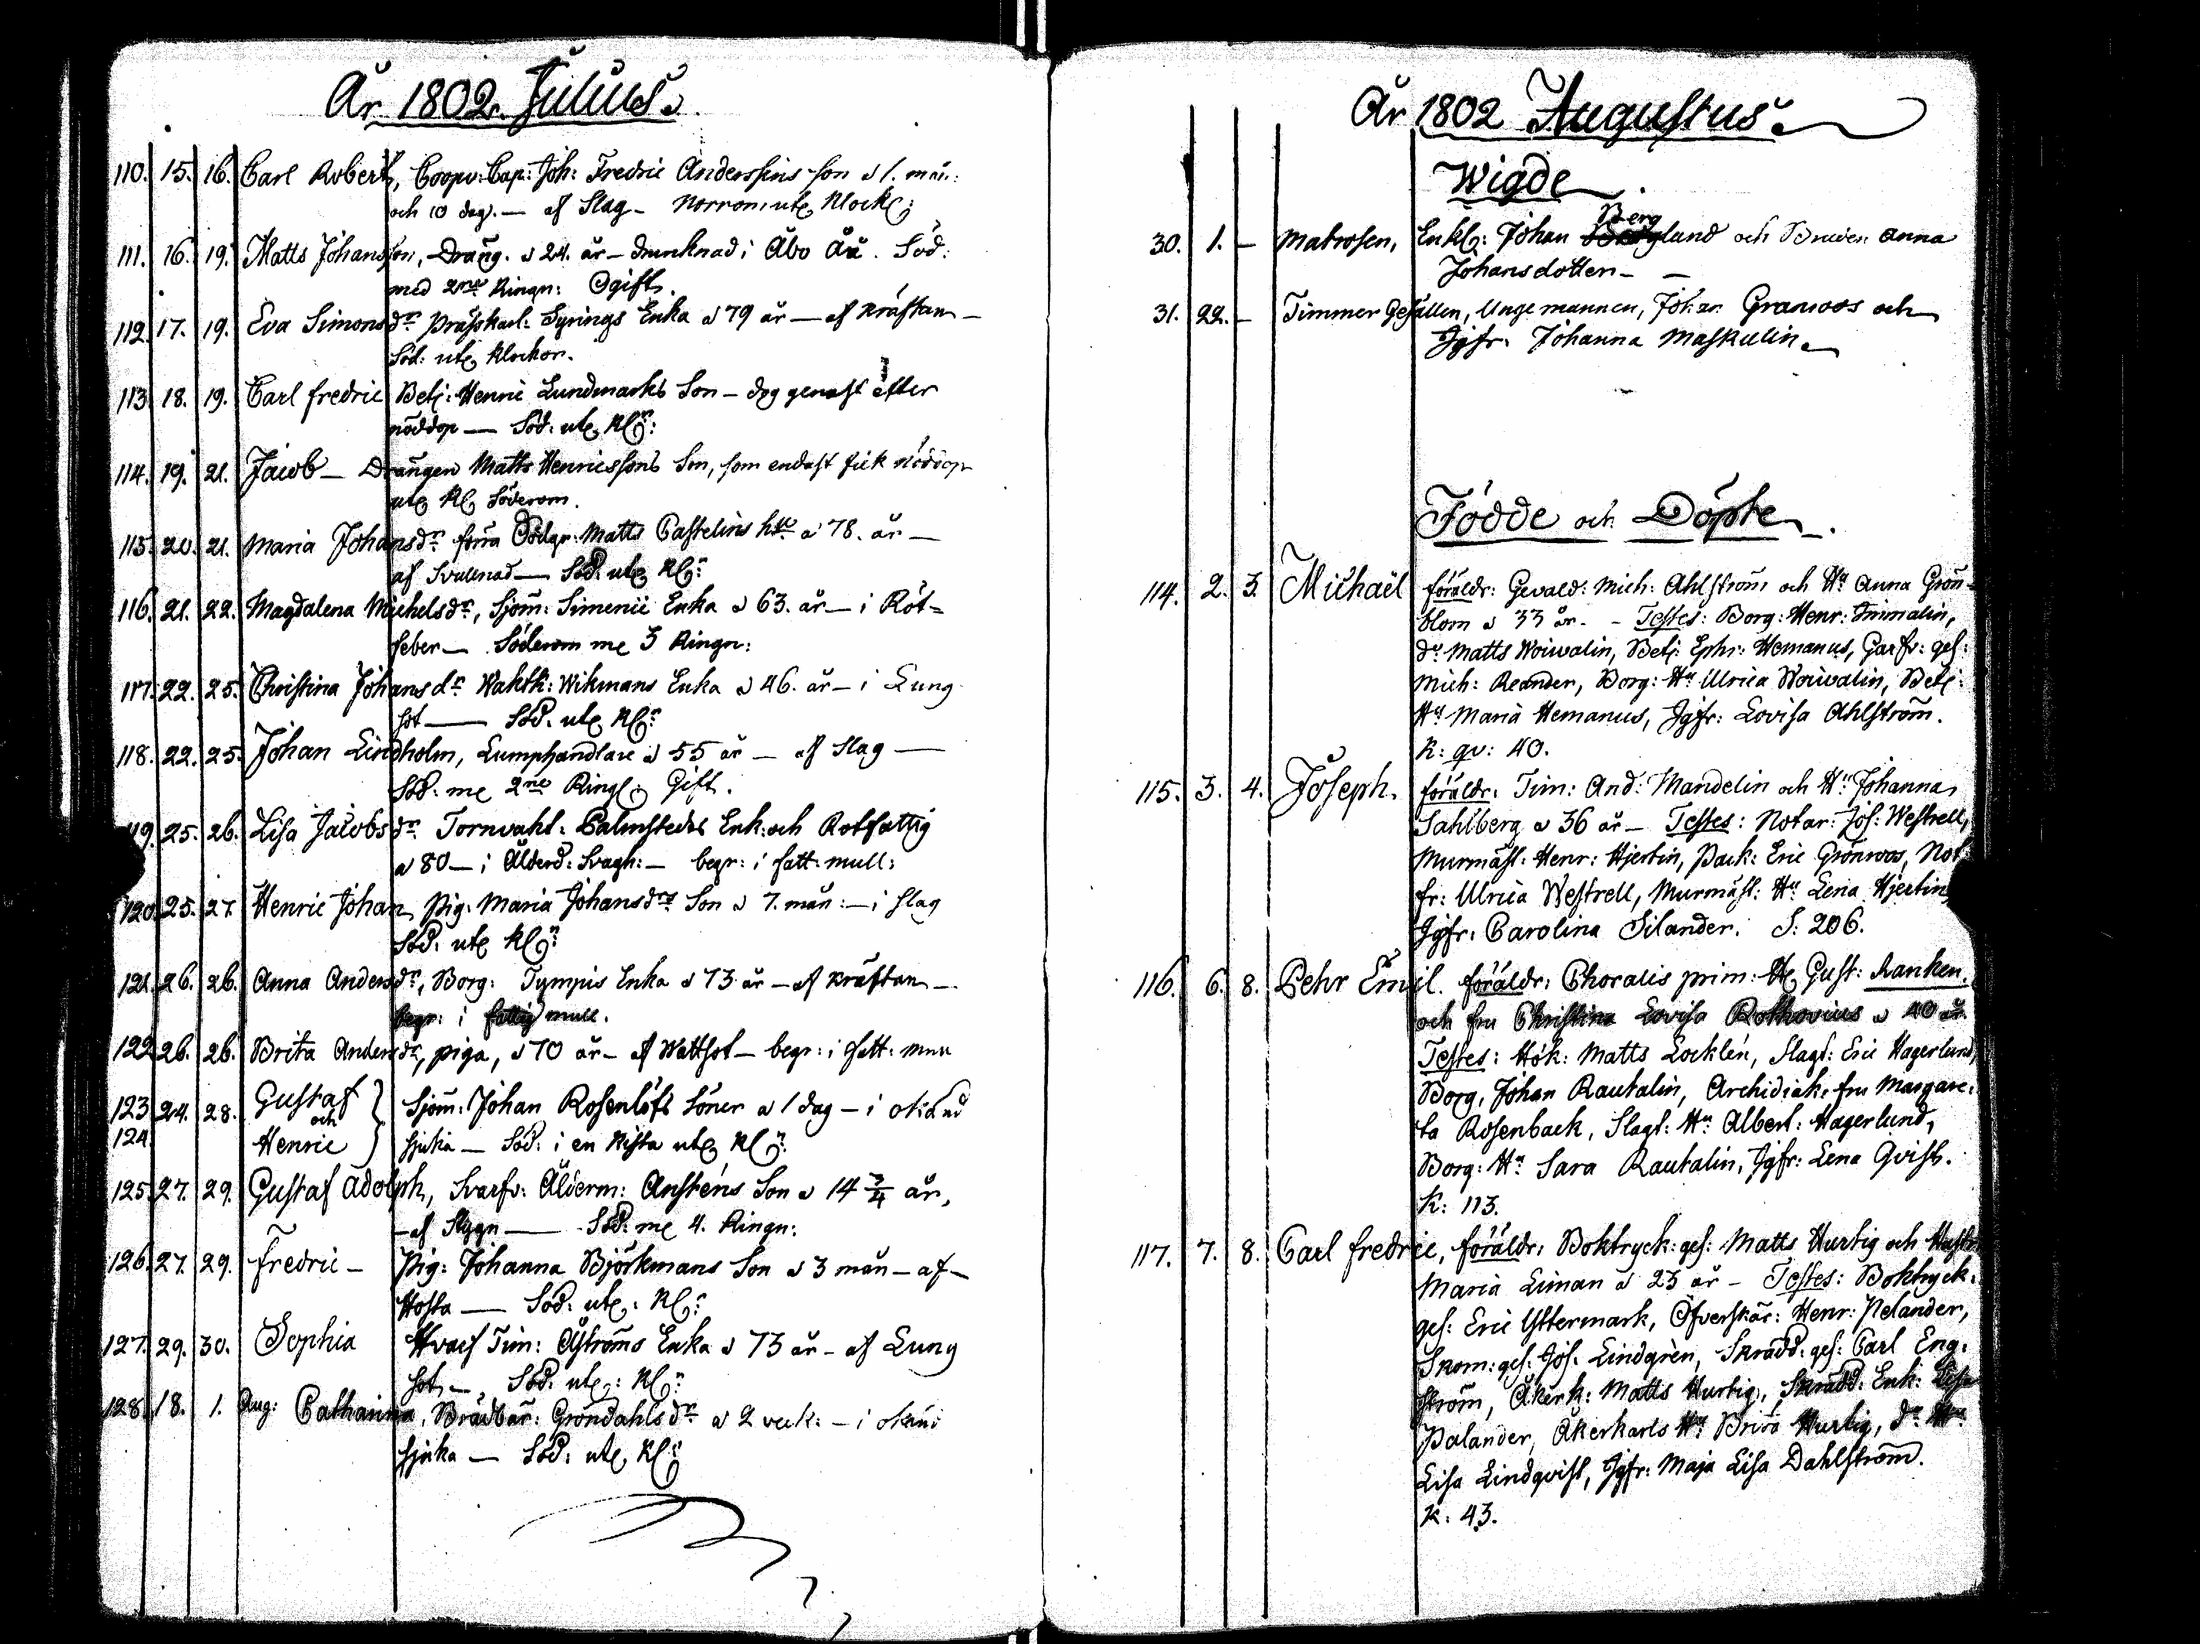 År 1802. Julius.
110. 15. 16. Carl Robert, Coopv: Cap: Joh: Fredric Anderssins son a 1. mån:
och 10 dag). — af Slag — Norrom, utẽ Klock:
111. 16. 19. Matts Johansson, Dräng. a 24. år — drunknad i Åbo Åä. Söd:
med 2ne Ringn: Ogift.
112. 17. 19. Eva Simonsdr Prässkarl: Syrings Enka a 79 år — af kräftan —
Söd: utẽ klockor.
113. 18. 19. Carl fredric Betj: Henric Lundmarks Son — dog genast efter
nöddop — Söd: utẽ Klr:
114. 19. 21. Jacob — Drängen Matts Henricssons Son, som endast fick nöddop
utẽ Kl Söderom.
115. 20. 21. Maria Johansdr förra Matts Castelins hu a 78. år —
af Svullnad — Söd: utẽ Klr:
116. 21. 22. Magdalena Michelsdr, Sjöm: Simenii Enka a 63. år — i Röt=
feber — Söderom me 3 Ringn:
117. 22. 25. Christina Johansdr Waktk: Wikmans Enka a 46. år — i Lung
sot — Söd. utẽ Klr:
118. 22. 25. Johan Lindholm, Lumphandlare a 55 år — af Slag —
Söd: me 2ne Ringl: Gift.
119. 25. 26. Lisa Jacobsdr Tornvakt: Palmstedts Enk: och Rotfattig
a 80 — i Ålderd: Svagh: — begr: i fatt: mull:
120. 25. 27. Henric Johan Pig: Maria Johansdrs Son a 7. mån: — i slag
Söd: utẽ Klr:
121. 26. 26. Anna Andersdr, Borg: Tympis Enka a 73 år — af kräftan —
begr: i fattig mull.
122 26. 26. Brita Andersdr, piga, a 70 år — af Wattsot — begr: i fatt: mull
123 24. 28. Gustaf Sjöm: Johan Rosenlöfs Söner a 1 dag — i okänd
och
124 Henric sjuka — Söd: i en Kista utẽ Klr:
125. 27. 29. Gustaf Adolph, Svarfv: Ålderm: Ansténs Son a 14 3/4 år,
— af Stygn — Söd: me 4. Ringn:
126. 27. 29. Fredric — Pig: Johanna Björkmans Son a 3 mån — af —
Hosta — Söd: utẽ: Klr:
127. 29. 30. Sophia Hvarf Tim: Åströms Enka a 73 år — af Lung
sot — Söd: utẽ: Klr:
128. 18. 1. Aug: Catharina, Brädbär: Gröndahls dr a 2 veck: — i okänd
sjuka — Söd: utẽ Klr:
År 1802 Augustus.
Wigde.
Berg
30. 1. — Matrosen, Enkl: Johan land och Bruden Anna
Johansdotter — —
31. 22. — Timmer Gesällen, Unge mannen, Johan Granroos och
Jgfr. Johanna Maskulin.
Födde och Döpte.
114. 2. 3. Michaël föräldr: Gevald: Mich: Ahlström och Hu Anna Grön-
blom a 33 år. — Testes: Borg: Henr: Immalin,
do Matts Woivalin, Betj: Ephr: Hemanus, Garfv: ges:
Mich: Reander, Borg: Hu Ulrica Woivalin, Betj:
Hu Maria Hemanus, Jgfr: Lovisa Ahlström.
K: qv: 40.
115. 3. 4. Joseph. föräldr: Tim: And: Mandelin och Hu Johanna
Sahlberg a 36 år — Testes: Notar: Jos: Westrell,
Murmäst: Henr: Hjertin, Pack: Eric Grönroos, Not:
fr: Ulrica Westrell, Murmäst: Hu Lena Hjertin
Jgfr: Carolina Silander. S: 206.
116. 6. 8. Pehr Emil. föräldr: Choralis prim: H: Gust: Ranken.
och fru Christina Lovisa Rothovius a 40 år.
Testes: Hök: Matts Locklén, Slagt: Eric Hagerlund,
Borg, Johan Rautalin, Archidiak: fru Margare:
ta Rosenback, Slagt: Hu Albert: Hagerlund,
Borg: Hu Sara Rautalin, Jgfr: Lena Qvist.
K: 113.
117. 7. 8. Carl fredric, föräldr: Boktryck: ges: Matts Hurtig och Hustr
Maria Liman a 23 år — Testes: Boktryck:
ges: Eric Yttermark, Öfverskär: Henr: Pelander,
Skom: ges: Jos: Lindgrèn, Skrädd: ges: Carl Eng:
ström, Åkerk: Matts Hurtig, Skrädd: Enk: Lisa
Palander, Åkerkarls Hu Brita Hurtig, do Hu
Lisa Lindqvist, Jgfr: Maja Lisa Dahlström.
K: 43.